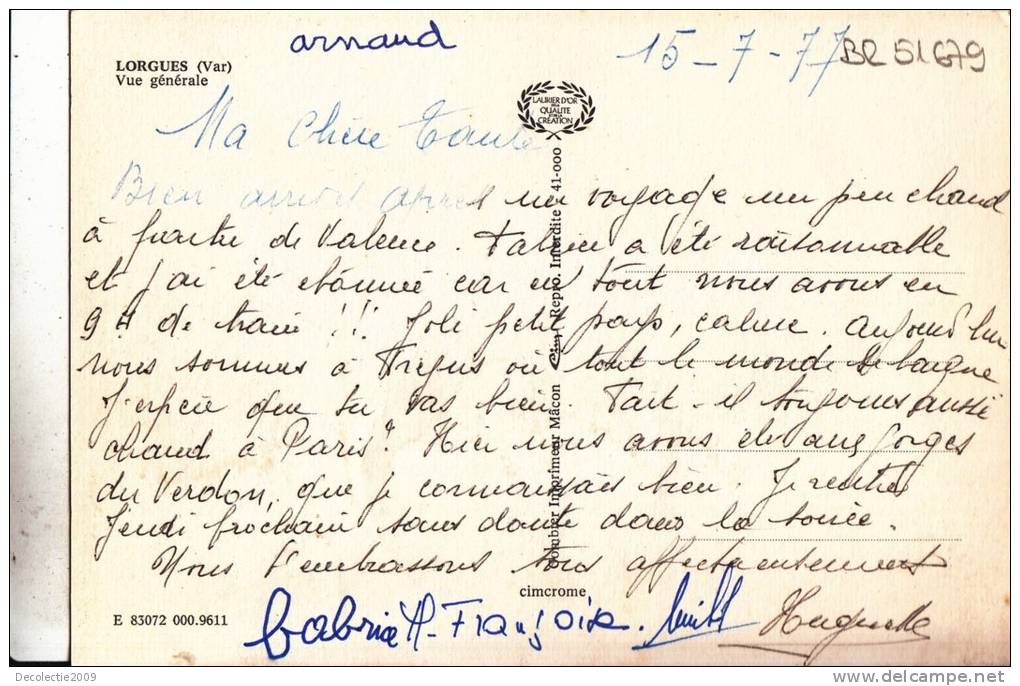 arnaud
15-7-77
BR 51679
LORGUES (Var)
Vue générale
LAURIER D'OR
DE LA
QUALITE
ET DE LA
CREATION
Ma chère Tante
Bien arrivés après un voyage un peu chaud
à partir de Valence. Fabien a été raisonnable
et j'ai été étonnée car en tout nous avons eu
9 H de train !!! Joli petit pays, calme. Aujourd'hui
nous sommes à Fréjus où tout le monde se baigne
J'espère que tu vas bien. Fait-il toujours aussi
chaud à Paris? Hier nous avons été aux gorges
du Verdon, que je connaissais bien. Je rentre
Jeudi prochain sans doute dans la soirée.
Nous t'embrassons tous affectueusement
Colombier Imprimeur Mâcon Cim Repro. Interdite 41-000
cimcrome
E 83072 000.9611
M-Françoise.
Huguette
© Decolectie2009
delcampe.net